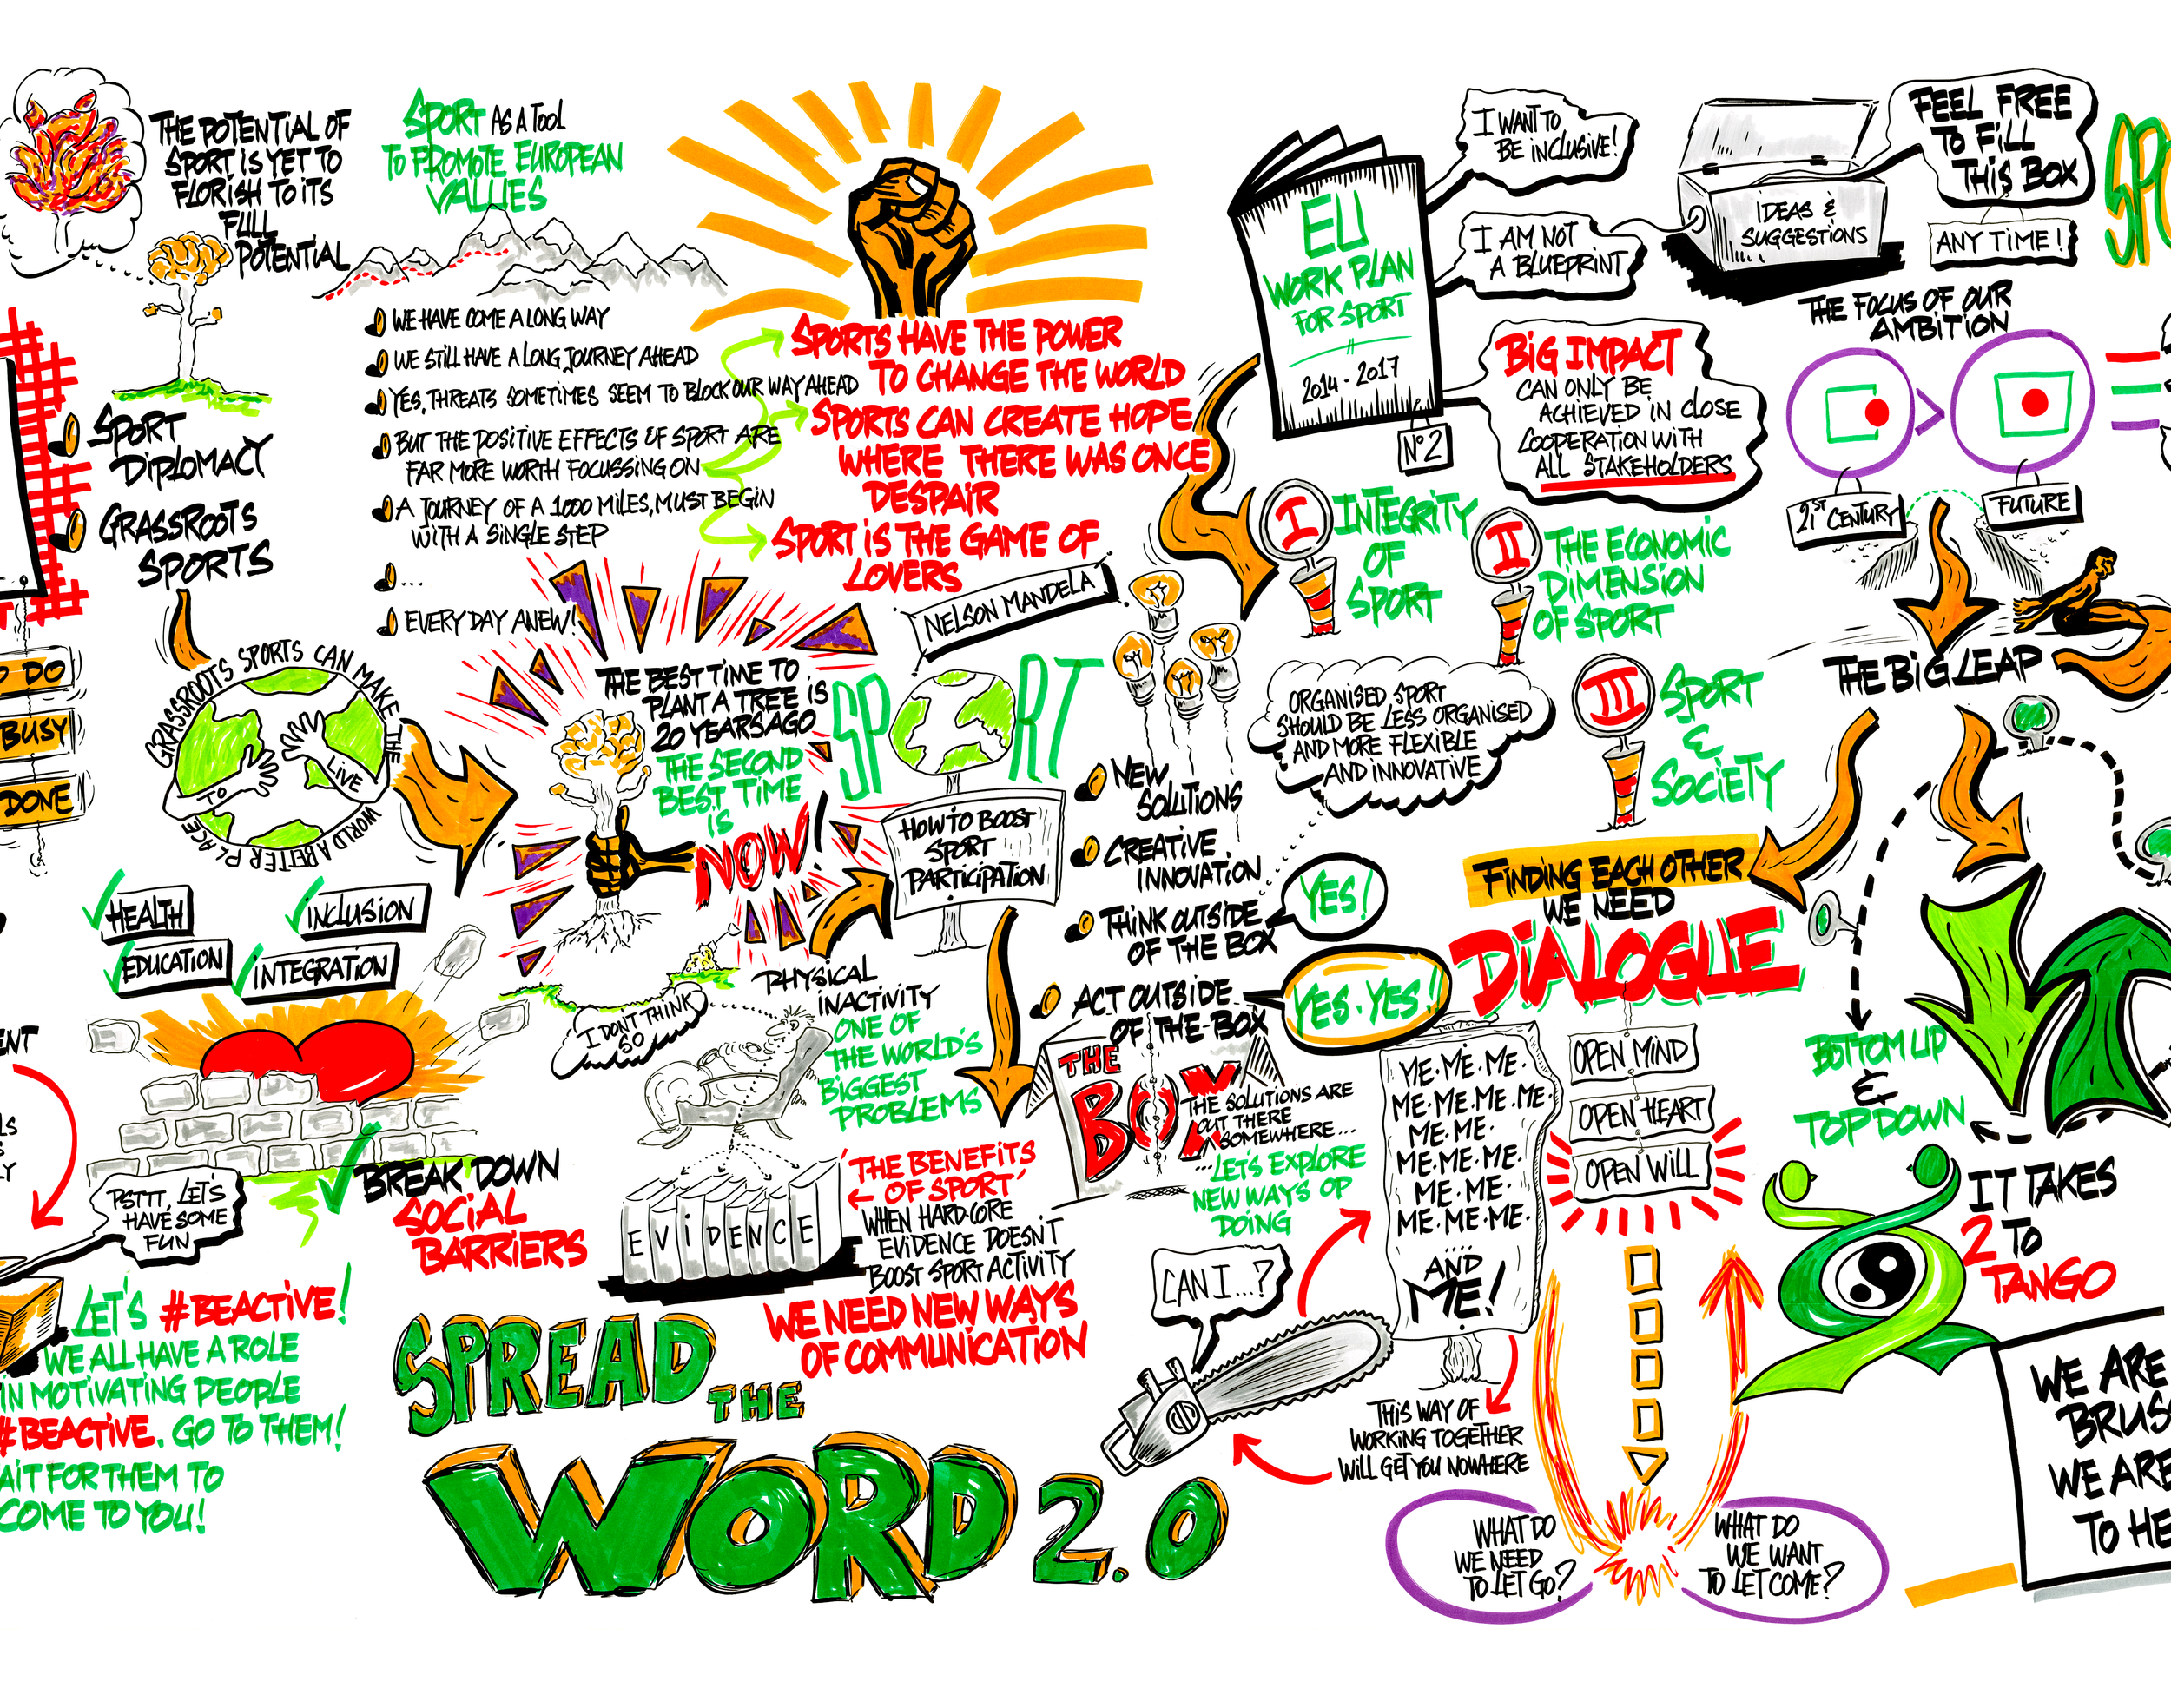 THE POTENTIAL OF
SPORT IS YET TO
FLORISH TO ITS
FULL
POTENTIAL
SPORT AS A TOOL
TO PROMOTE EUROPEAN
VALUES
WE HAVE COME A LONG WAY
WE STILL HAVE A LONG JOURNEY AHEAD
YES, THREATS SOMETIMES SEEM TO BLOCK OUR WAY AHEAD
BUT THE POSITIVE EFFECTS OF SPORT ARE
FAR MORE WORTH FOCUSSING ON
A JOURNEY OF A 1000 MILES, MUST BEGIN
WITH A SINGLE STEP
...
EVERY DAY ANEW!
SPORTS HAVE THE POWER
TO CHANGE THE WORLD
SPORTS CAN CREATE HOPE
WHERE THERE WAS ONCE
DESPAIR
SPORT IS THE GAME OF
LOVERS
NELSON MANDELA
EU
WORK PLAN
FOR SPORT
2014 - 2017
N° 2
I WANT TO
BE INCLUSIVE!
I AM NOT
A BLUEPRINT
BIG IMPACT
CAN ONLY BE
ACHIEVED IN CLOSE
COOPERATION WITH
ALL STAKEHOLDERS
IDEAS &
SUGGESTIONS
FEEL FREE
TO FILL
THIS BOX
ANY TIME!
THE FOCUS OF OUR
AMBITION
>
21ST CENTURY
FUTURE
THE BIG LEAP
SPORT
DIPLOMACY
GRASSROOTS
SPORTS
DO
BUSY
DONE
GRASSROOTS SPORTS CAN MAKE THE WORLD A BETTER PLACE
TO LIVE
HEALTH
INCLUSION
EDUCATION
INTEGRATION
THE BEST TIME TO
PLANT A TREE IS
20 YEARS AGO
THE SECOND
BEST TIME
IS
NOW!
SPORT
HOW TO BOOST
SPORT
PARTICIPATION
NEW
SOLUTIONS
CREATIVE
INNOVATION
THINK OUTSIDE
OF THE BOX
YES!
ACT OUTSIDE
OF THE BOX
YES. YES!
I
INTEGRITY
OF
SPORT
II
THE ECONOMIC
DIMENSION
OF SPORT
III
SPORT
&
SOCIETY
ORGANISED SPORT
SHOULD BE LESS ORGANISED
AND MORE FLEXIBLE
AND INNOVATIVE
FINDING EACH OTHER
WE NEED
DIALOGUE
OPEN MIND
OPEN HEART
OPEN WILL
BOTTOM UP
&
TOP DOWN
IT TAKES
2 TO
TANGO
I DONT THINK
SO
PHYSICAL
INACTIVITY
ONE OF
THE WORLD'S
BIGGEST
PROBLEMS
EVIDENCE
'THE BENEFITS
OF SPORT'
WHEN HARD-CORE
EVIDENCE DOESN'T
BOOST SPORT ACTIVITY
WE NEED NEW WAYS
OF COMMUNICATION
THE
BOX
THE SOLUTIONS ARE
OUT THERE
SOMEWHERE...
...LET'S EXPLORE
NEW WAYS OP
DOING
ME. ME. ME.
ME. ME. ME. ME.
ME. ME.
ME. ME. ME.
ME. ME.
ME. ME. ME.
....
AND
ME!
CAN I...?
THIS WAY OF
WORKING TOGETHER
WILL GET YOU NOWHERE
WHAT DO
WE NEED
TO LET GO?
WHAT DO
WE WANT
TO LET COME?
BREAK DOWN
SOCIAL
BARRIERS
PSTTT, LET'S
HAVE SOME
FUN
LET'S #BEACTIVE!
WE ALL HAVE A ROLE
IN MOTIVATING PEOPLE
#BEACTIVE. GO TO THEM!
AIT FOR THEM TO
COME TO YOU!
SPREAD THE
WORD 2.0
WE ARE
BRUS
WE ARE
TO HE